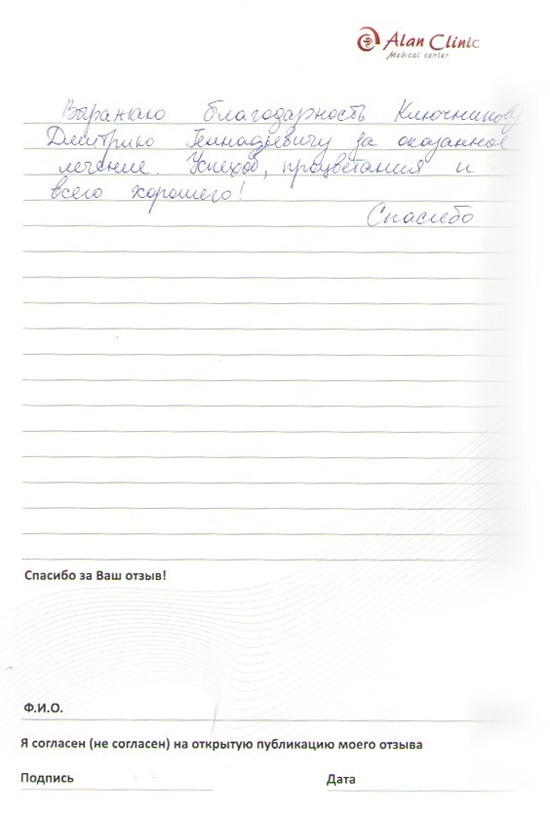 Alan Clinic
Medical center
Выражаю благодарность Ключникову
Дмитрию Геннадьевичу за оказанное
лечение. Успехов, процветания и
всего хорошего!
Спасибо
Спасибо за Ваш отзыв!
Ф.И.О.
Я согласен (не согласен) на открытую публикацию моего отзыва
Подпись Дата